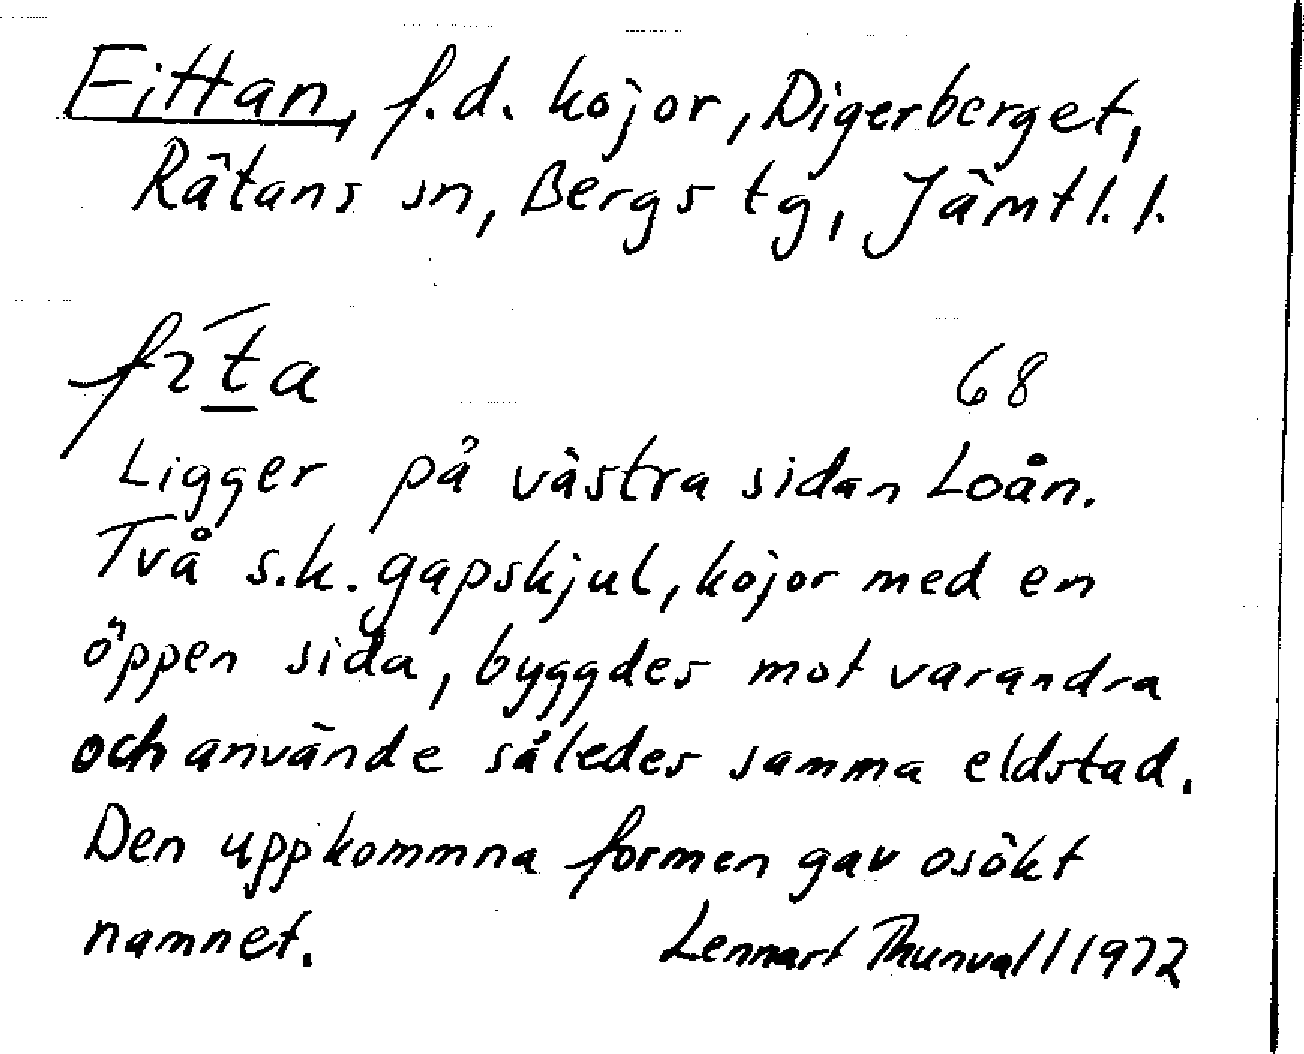 Fittan, f.d. kojor, Digerberget,
Rätans sn, Bergs tg, Jämtl. l.
fɪt̲a 68
Ligger på västra sidan Loån.
Två s.k. gapskjul, kojor med en
öppen sida, byggdes mot varandra
och använde således samma eldstad.
Den uppkommna formen gav osökt
namnet. Lennart Thunvall 1972